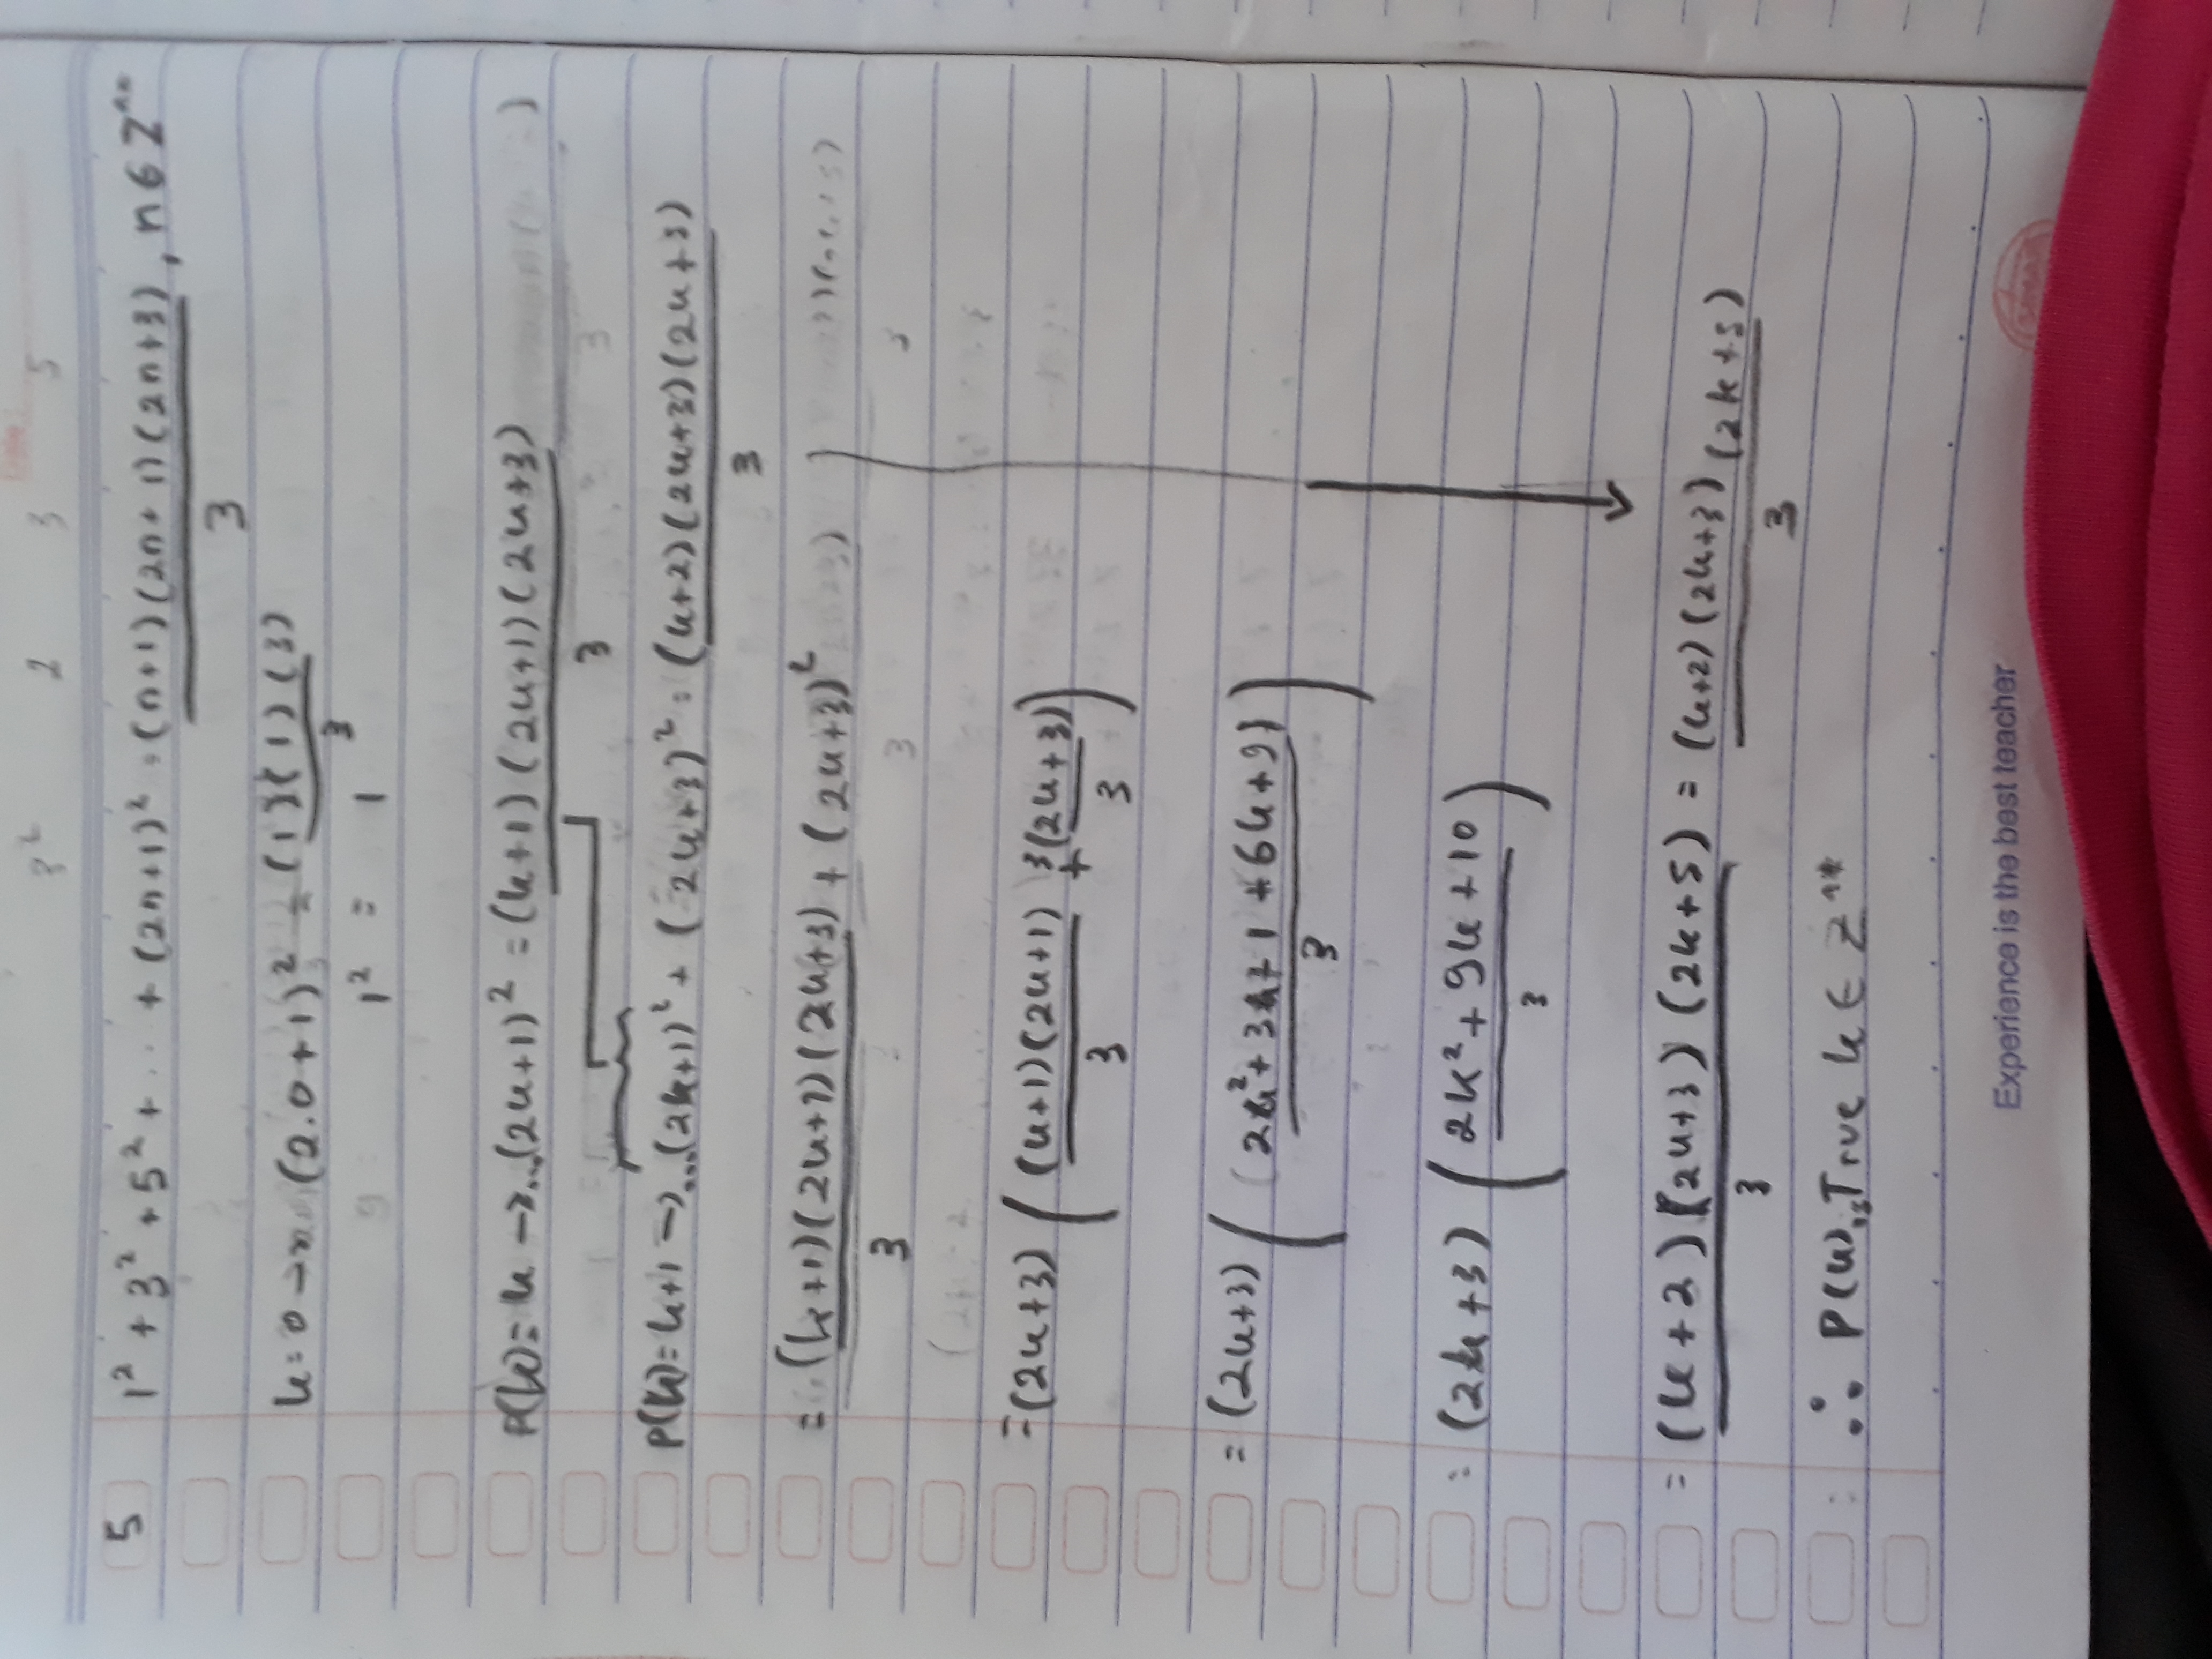 3² 2 3 5
5 1² + 3² + 5² + ... + (2n+1)² = (n+1)(2n+1)(2n+3), n ∈ Z
3
k=0 → (2.0+1)² = (1)(1)(3)
3
1² = 1
P(k)= k → ...(2k+1)² = (k+1)(2k+1)(2k+3)
3
P(k)= k+1 → ...(2k+1)² + (2k+3)² = (k+2)(2k+3)(2k+5)
3
= (k+1)(2k+1)(2k+3) + (2k+3)²
3
= (2k+3) ( (k+1)(2k+1) + 3(2k+3) )
3 3
= (2k+3) ( (2k²+3k+1+6k+9) )
3
= (2k+3) ( 2k²+9k+10 )
3
= (k+2)(2k+3)(2k+5) = (k+2)(2k+3)(2k+5)
3 3
∴ P(k) is True k ∈ Z
Experience is the best teacher